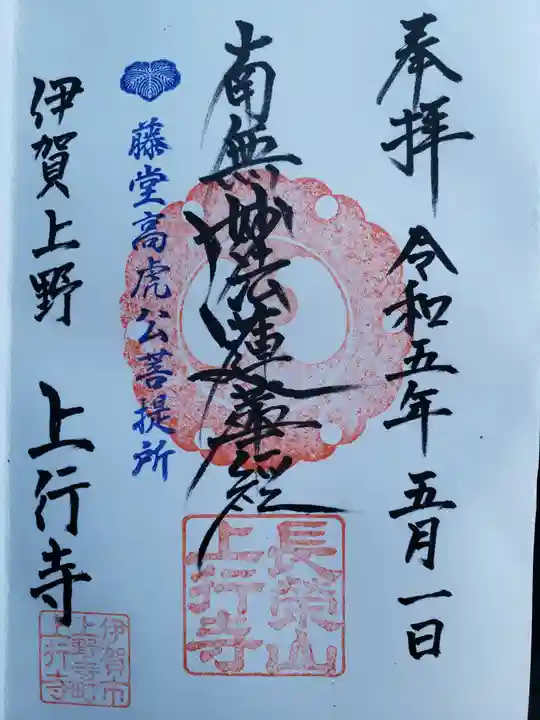 奉拝 令和五年 五月一日
南無妙法蓮華経
藤堂高虎公菩提所
伊賀上野 上行寺
長榮山
上行寺
伊賀市
上野寺町
上行寺